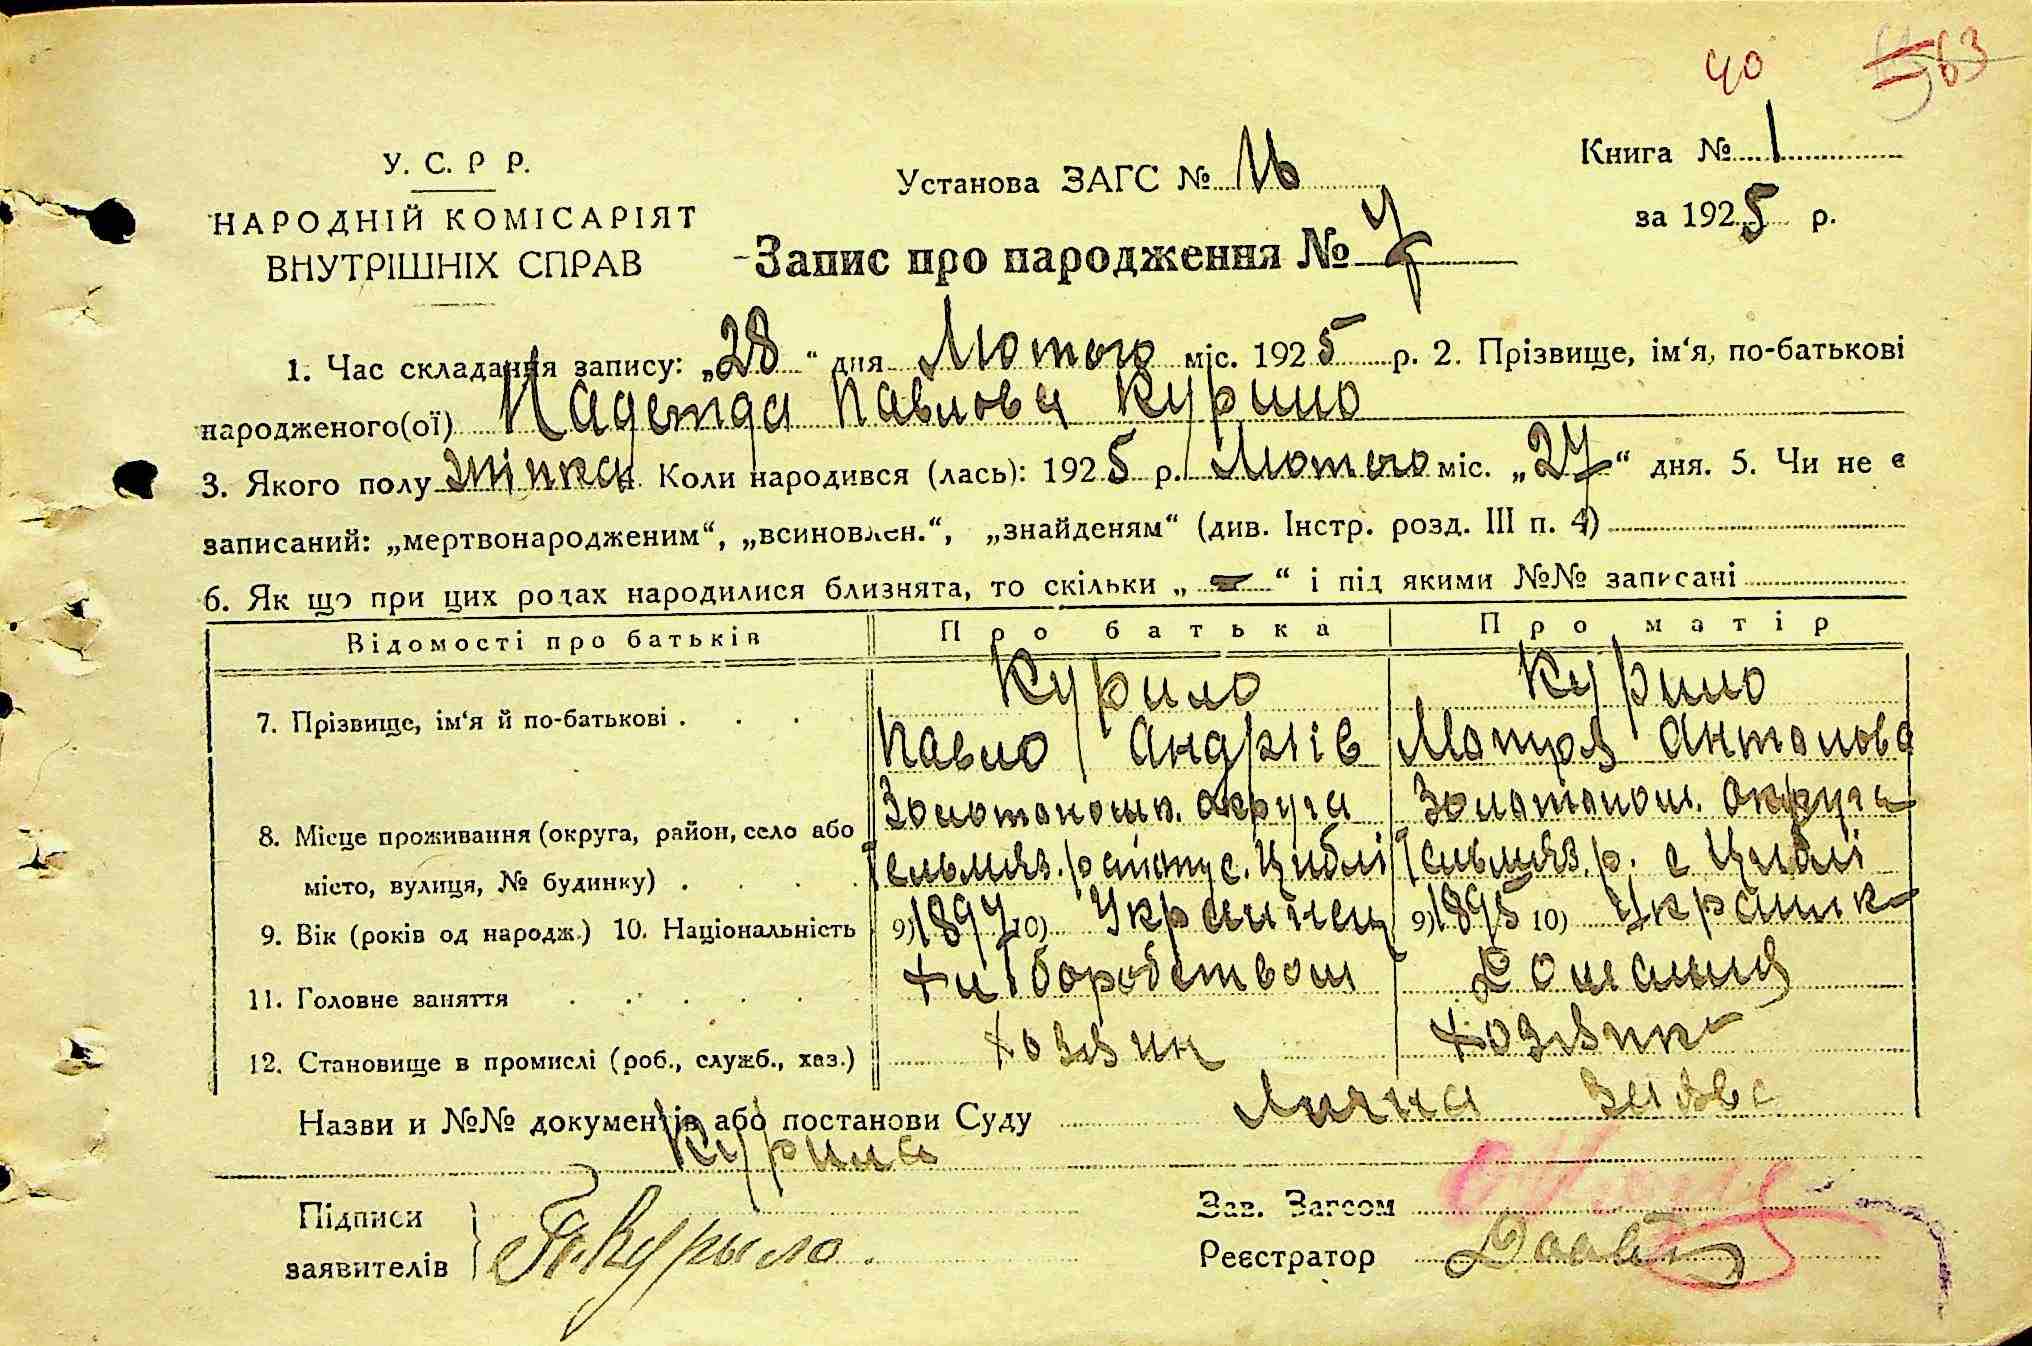 40 63
У. С. Р Р.
НАРОДНІЙ КОМІСАРІЯТ
ВНУТРІШНІХ СПРАВ
Установа ЗАГС № 16
Книга № 1
за 1925 р.
Запис про народження № 7
1. Час складання запису: „28“ дня Лютого міс. 1925 р. 2. Прізвище, ім‘я, по-батькові
народженого(ої) Надетда Павлова Курило
3. Якого полу жінка 4. Коли народився (лась): 1925 р. Лютого міс. „27“ дня. 5. Чи не є
записаний: „мертвонародженим“, „всиновлен.“, „знайденям“ (див. Інстр. розд. III п. 4)
6. Як що при цих родах народилися близнята, то скільки „ — “ і під якими №№ записані
Відомості про батьків Про батька Про матір
7. Прізвище, ім‘я й по-батькові . . . Курило Курило
Павло Андріів Мотря Антонова
8. Місце проживання (округа, район, село або Золотоношк. округа Золотонош. округа
місто, вулиця, № будинку) . . . . Гельмяз. району с. Циблі Гельмяз. р. с Циблі
9. Вік (років од народж.) 10. Національність 9) 1897 10) Украинец 9) 1895 10) Украинк
11. Головне заняття . . . . . Хліборобством Домашня
12. Становище в промислі (роб., служб., хаз.) Хозяин Хозяйк
Назви и №№ документів або постанови Суду Лична заява
Курила
Підписи
заявителів
П. Курыло.
Зав. Загсом
Реєстратор